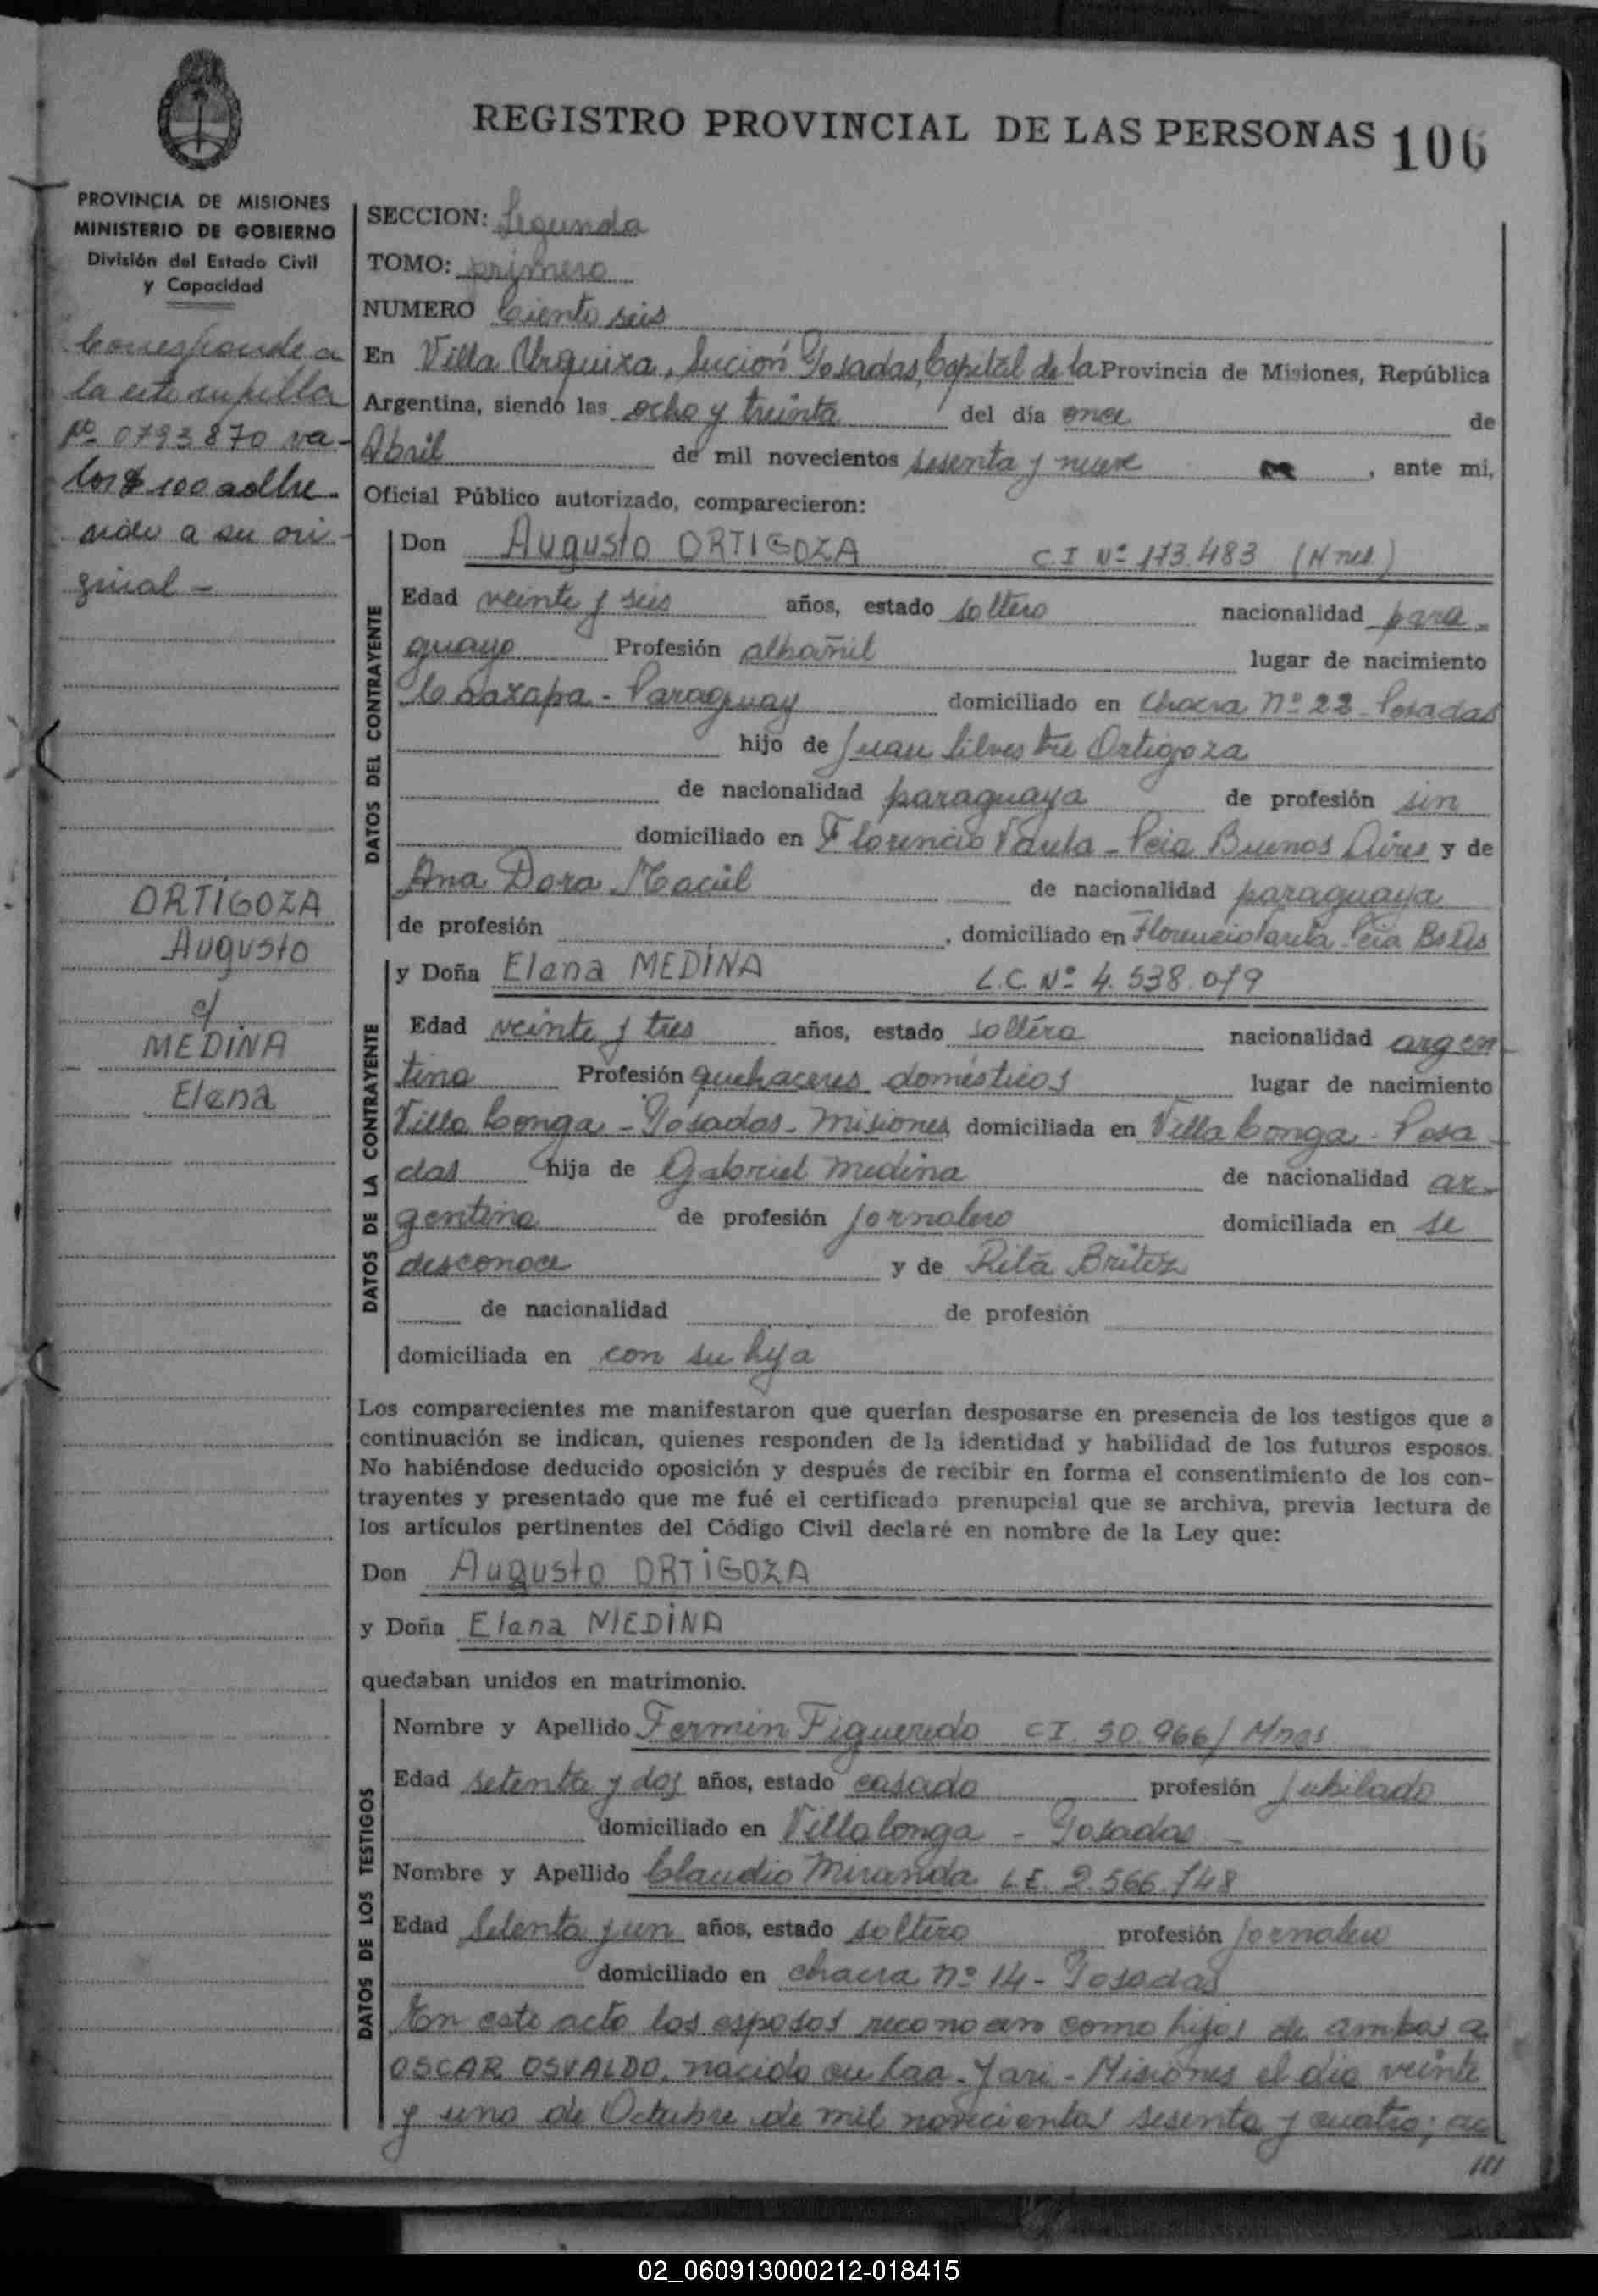 REGISTRO PROVINCIAL DE LAS PERSONAS 106
PROVINCIA DE MISIONES
MINISTERIO DE GOBIERNO
División del Estado Civil
y Capacidad
Corresponde a
la estampilla
Nº 0793870 va-
lor $ 100 adhe-
rida a su ori-
ginal -
ORTIGOZA
Augusto
c/
MEDINA
Elena
SECCION: Segunda
TOMO: primero
NUMERO Ciento seis
En Villa Urquiza, Posadas, Capital de la Provincia de Misiones, República
Argentina, siendo las ocho y treinta del día once de
Abril de mil novecientos sesenta y nueve , ante mi,
Oficial Público autorizado, comparecieron:
DATOS DEL CONTRAYENTE
Don Augusto ORTIGOZA C.I Nº 173.483 (Mnes.)
Edad veinte y seis años, estado soltero nacionalidad para-
guayo Profesión albañil lugar de nacimiento
Caazapa - Paraguay domiciliado en Chacra nº 23 - Posadas
hijo de Juan Silvestre Ortigoza
de nacionalidad paraguaya de profesión sin
domiciliado en Florencio Varela - Pcia Buenos Aires y de
Ana Dora Maciel de nacionalidad paraguaya
de profesión , domiciliado en Florencio Varela Pcia Bs As
DATOS DE LA CONTRAYENTE
y Doña Elena MEDINA L.C. Nº 4.538.019
Edad veinte y tres años, estado soltera nacionalidad argen
tina Profesión quehaceres domésticos lugar de nacimiento
Villa Longa - Posadas - Misiones domiciliada en Villa Longa - Posa
das hija de Gabriel Medina de nacionalidad ar-
gentina de profesión jornalero domiciliada en se
desconoce y de Rita Britez
de nacionalidad de profesión
domiciliada en con su hija
Los comparecientes me manifestaron que querían desposarse en presencia de los testigos que a
continuación se indican, quienes responden de la identidad y habilidad de los futuros esposos.
No habiéndose deducido oposición y después de recibir en forma el consentimiento de los con-
trayentes y presentado que me fué el certificado prenupcial que se archiva, previa lectura de
los artículos pertinentes del Código Civil declaré en nombre de la Ley que:
Don Augusto ORTIGOZA
y Doña Elena MEDINA
quedaban unidos en matrimonio.
DATOS DE LOS TESTIGOS
Nombre y Apellido Fermin Figueredo CI. 50.966/ Mnes
Edad setenta y dos años, estado casado profesión jubilado
domiciliado en Villalonga - Posadas -
Nombre y Apellido Claudio Miranda L.E. 2.566.748
Edad Setenta y un años, estado soltero profesión jornalero
domiciliado en chacra nº 14 - Posadas
En este acto los esposos reconocen como hijos de ambos a
OSCAR OSVALDO, nacido en Caa-Yari - Misiones el dia veinte
y uno de Octubre de mil novecientos sesenta y cuatro; a
///
02_060913000212-018415